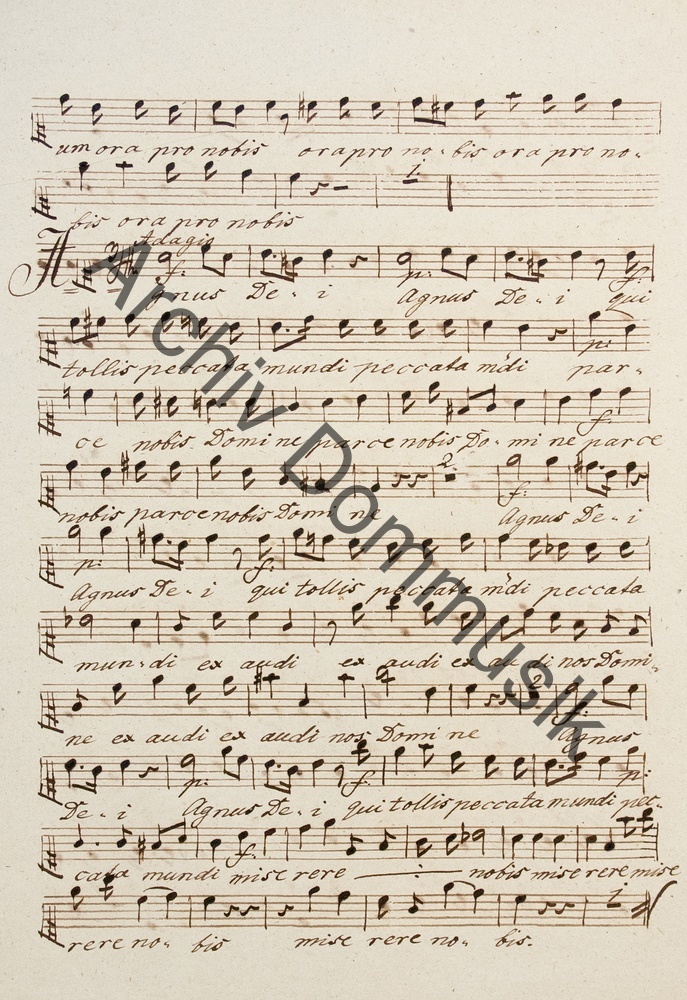 um ora pro nobis ora pro no - bis ora pro no -
1.
bis ora pro nobis
Adagio
f: p: f:
Agnus De - i Agnus De - i qui
p:
tollis peccata mundi peccata mūdi par -
f:
ce nobis Domine parce nobis Do - mi ne parce
2. f:
nobis parce nobis Domi ne Agnus De - i
p: f:
Agnus De - i qui tollis peccata mūdi peccata
mun - di ex audi ex audi ex audi nos Domi -
2 f:
ne ex audi ex audi nos Domi ne Agnus
p: f: p:
De - i Agnus De - i qui tollis peccata mundi pec -
f:
cata mundi mise rere nobis mise rere mise
1
rere no - bis mise rere no - bis.
Archiv Dommusik